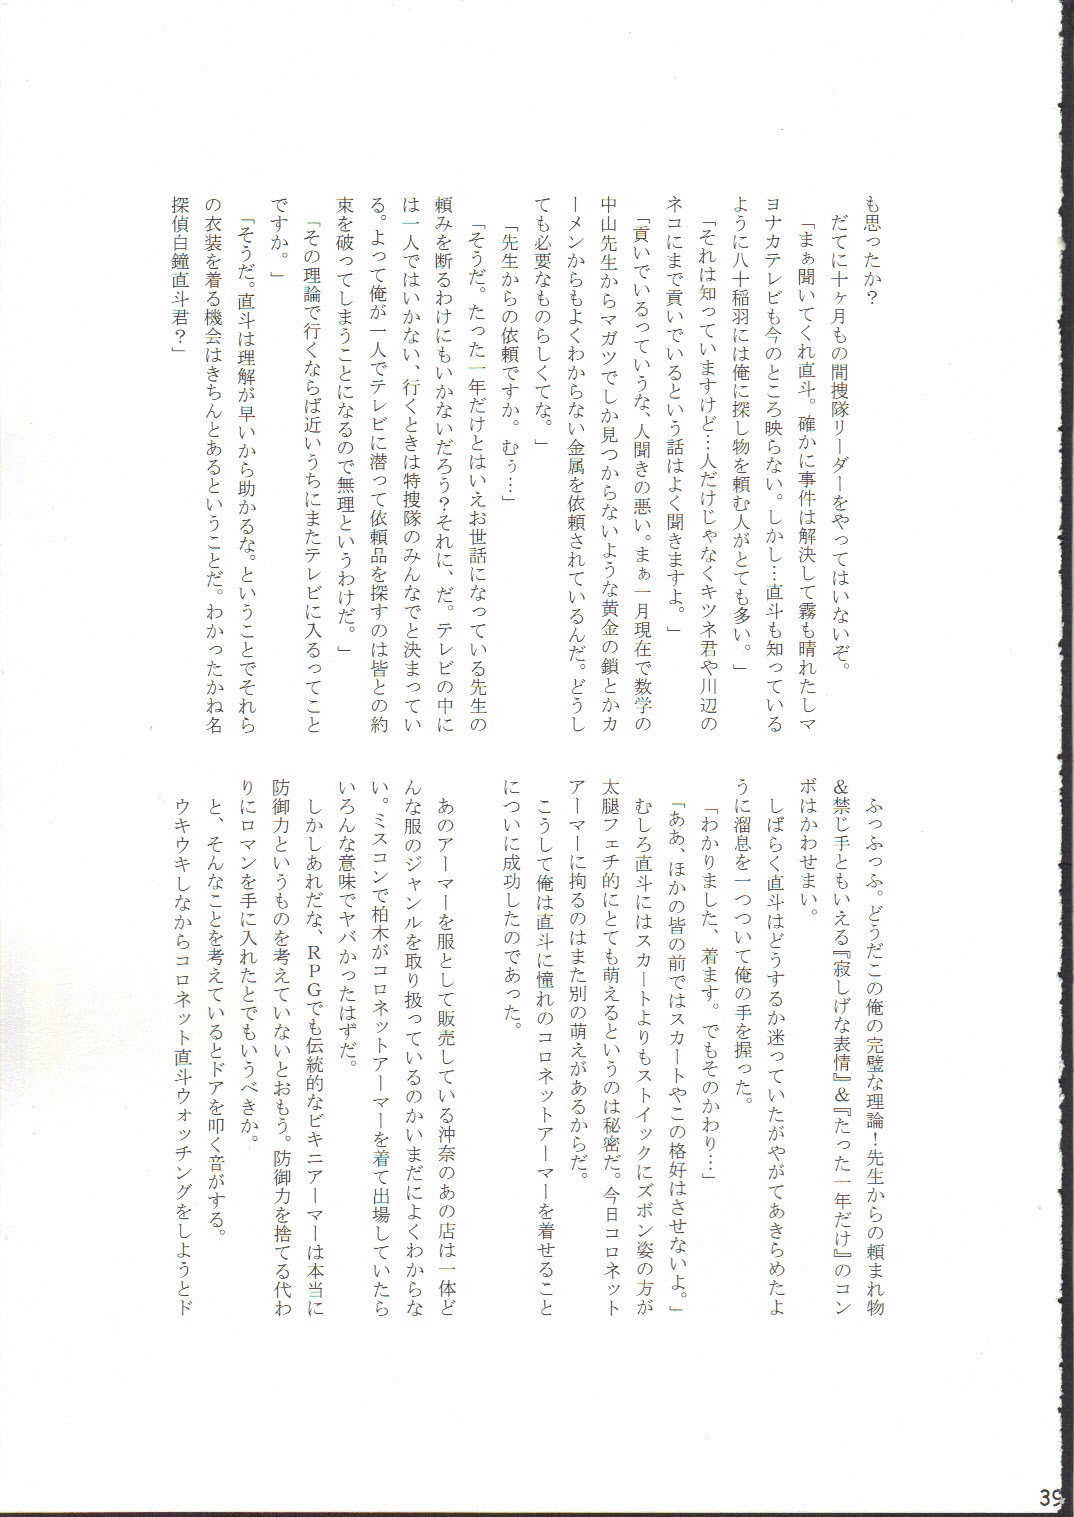 も思ったか？
だてに十ヶ月もの間捜隊リーダーをやってはいないぞ。
「まぁ聞いてくれ直斗。確かに事件は解決して霧も晴れたしマ
ヨナカテレビも今のところ映らない。しかし…直斗も知っている
ように八十稲羽には俺に探し物を頼む人がとても多い。」
「それは知っていますけど…人だけじゃなくキツネ君や川辺の
ネコにまで貢いでいるという話はよく聞きますよ。」
「貢いでいるっていうな、人聞きの悪い。まぁ一月現在で数学の
中山先生からマガツでしか見つからないような黄金の鎖とかカ
ーメンからもよくわからない金属を依頼されているんだ。どうし
ても必要なものらしくてな。」
「先生からの依頼ですか。むぅ…」
「そうだ。たった一年だけとはいえお世話になっている先生の
頼みを断るわけにもいかないだろう？それに、だ。テレビの中に
は一人ではいかない、行くときは特捜隊のみんなでと決まってい
る。よって俺が一人でテレビに潜って依頼品を探すのは皆との約
束を破ってしまうことになるので無理というわけだ。」
「その理論で行くならば近いうちにまたテレビに入るってこと
ですか。」
「そうだ。直斗は理解が早いから助かるな。ということでそれら
の衣装を着る機会はきちんとあるということだ。わかったかね名
探偵白鐘直斗君？」
ふっふっふ。どうだこの俺の完璧な理論！先生からの頼まれ物
＆禁じ手ともいえる『寂しげな表情』＆『たった一年だけ』のコン
ボはかわせまい。
しばらく直斗はどうするか迷っていたがやがてあきらめたよ
うに溜息を一つついて俺の手を握った。
「わかりました、着ます。でもそのかわり…」
「ああ、ほかの皆の前ではスカートやこの格好はさせないよ。」
むしろ直斗にはスカートよりもストイックにズボン姿の方が
太腿フェチ的にとても萌えるというのは秘密だ。今日コロネット
アーマーに拘るのはまた別の萌えがあるからだ。
こうして俺は直斗に憧れのコロネットアーマーを着せること
についに成功したのであった。
あのアーマーを服として販売している沖奈のあの店は一体ど
んな服のジャンルを取り扱っているのかいまだによくわからな
い。ミスコンで柏木がコロネットアーマーを着て出場していたら
いろんな意味でヤバかったはずだ。
しかしあれだな、ＲＰＧでも伝統的なビキニアーマーは本当に
防御力というものを考えていないとおもう。防御力を捨てる代わ
りにロマンを手に入れたとでもいうべきか。
と、そんなことを考えているとドアを叩く音がする。
ウキウキしなからコロネット直斗ウォッチングをしようとド
39